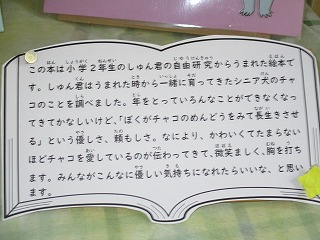 この本は小学２年生のしゅん君の自由研究からうまれた絵本で
す。しゅん君はうまれた時から一緒に育ってきたシニア犬のチャ
コのことを調べました。年をとっていろんなことができなくなっ
てきてかなしいけど、「ぼくがチャコのめんどうをみて長生きさせ
る」という優しさ、頼もしさ。なにより、かわいくてたまらない
ほどチャコを愛しているのが伝わってきて、微笑ましく、胸を打ち
ます。みんながこんなに優しい気持ちになれたらいいな、と思い
ます。